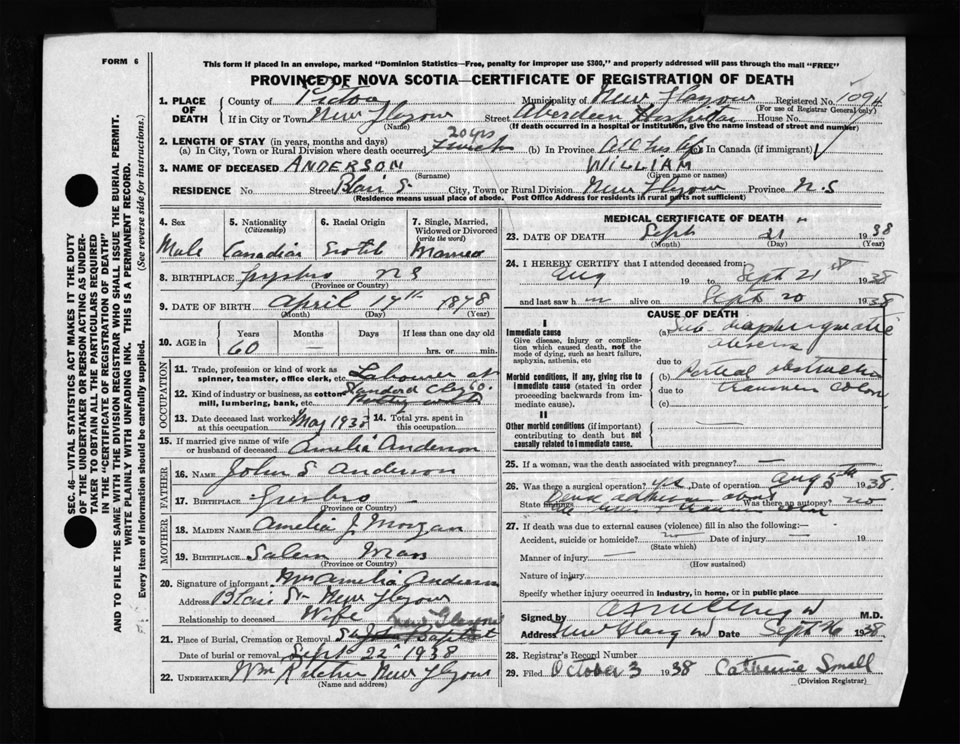 FORM 6
This form if placed in an envelope, marked "Dominion Statistics—Free, penalty for improper use $300," and properly addressed will pass through the mail "FREE"
PROVINCE OF NOVA SCOTIA—CERTIFICATE OF REGISTRATION OF DEATH
SEC. 46—VITAL STATISTICS ACT MAKES IT THE DUTY
OF THE UNDERTAKER OR PERSON ACTING AS UNDER-
TAKER TO OBTAIN ALL THE PARTICULARS REQUIRED
IN THE "CERTIFICATE OF REGISTRATION OF DEATH"
AND TO FILE THE SAME WITH THE DIVISION REGISTRAR WHO SHALL ISSUE THE BURIAL PERMIT.
WRITE PLAINLY WITH UNFADING INK. THIS IS A PERMANENT RECORD.
Every item of Information should be carefully supplied. (See reverse side for instructions.)
1. PLACE OF DEATH
County of Pictou Municipality of New Glasgow Registered No. 1094
(For use of Registrar General only)
If in City or Town New Glasgow Street Aberdeen Hospital House No.
(Name) (If death occurred in a hospital or institution, give the name instead of street and number)
2. LENGTH OF STAY (in years, months and days) 20 yrs
(a) In City, Town or Rural Division where death occurred (b) In Province All his life (c) In Canada (if immigrant)
3. NAME OF DECEASED ANDERSON WILLIAM
(Surname) (Given name or names)
RESIDENCE No. Street Blair St City, Town or Rural Division New Glasgow Province N.S
(Residence means usual place of abode. Post Office Address for residents in rural parts not sufficient)
4. Sex 5. Nationality (Citizenship) 6. Racial Origin 7. Single, Married, Widowed or Divorced (write the word)
Male Canadian Scotch Married
8. BIRTHPLACE Guysboro N S
(Province or Country)
9. DATE OF BIRTH April 17th 1878
(Month) (Day) (Year)
10. AGE in Years Months Days If less than one day old
60 — hrs. or min.
OCCUPATION
11. Trade, profession or kind of work as spinner, teamster, office clerk, etc. Labourer at
12. Kind of industry or business, as cotton mill, lumbering, bank, etc. Standard Clay
13. Date deceased last worked at this occupation May 1938 14. Total yrs. spent in this occupation
15. If married give name of wife or husband of deceased Amelia Anderson
FATHER
16. NAME John S Anderson
17. BIRTHPLACE Guysboro
(Province or Country)
MOTHER
18. MAIDEN NAME Amelia J. Morgan
19. BIRTHPLACE Salem Mass
(Province or Country)
20. Signature of informant Mrs Amelia Anderson
Address Blair St New Glasgow
Relationship to deceased Wife
New Glasgow
21. Place of Burial, Cremation or Removal Baptist
Date of burial or removal Sept 22 1938
22. UNDERTAKER Wm New Glasgow
(Name and address)
MEDICAL CERTIFICATE OF DEATH
23. DATE OF DEATH Sept 21 1938
(Month) (Day) (Year)
24. I HEREBY CERTIFY that I attended deceased from:
Aug 19 to Sept 21st 1938
and last saw h im alive on Sept 20 1938
CAUSE OF DEATH
I
Immediate cause
Give disease, injury or complication which caused death, not the mode of dying, such as heart failure, asphyxia, asthenia, etc
(a) Sub diaphragmatic abscess
due to
Morbid conditions, if any, giving rise to immediate cause (stated in order proceeding backwards from immediate cause).
(b) Partial obstruction
due to
(c) colon
II
Other morbid conditions (if important) contributing to death but not causally related to immediate cause.
25. If a woman, was the death associated with pregnancy? —
26. Was there a surgical operation? yes Date of operation Aug 5th 1938
State findings Was there an autopsy? no
27. If death was due to external causes (violence) fill in also the following:—
Accident, suicide or homicide? no Date of injury — 19
(State which)
Manner of injury —
(How sustained)
Nature of injury
Specify whether injury occurred in industry, in home, or in public place
Signed by M.D.
Address New Glasgow Date Sept 26 1938
28. Registrar's Record Number
29. Filed October 3 1938 Catherine Small
(Division Registrar)